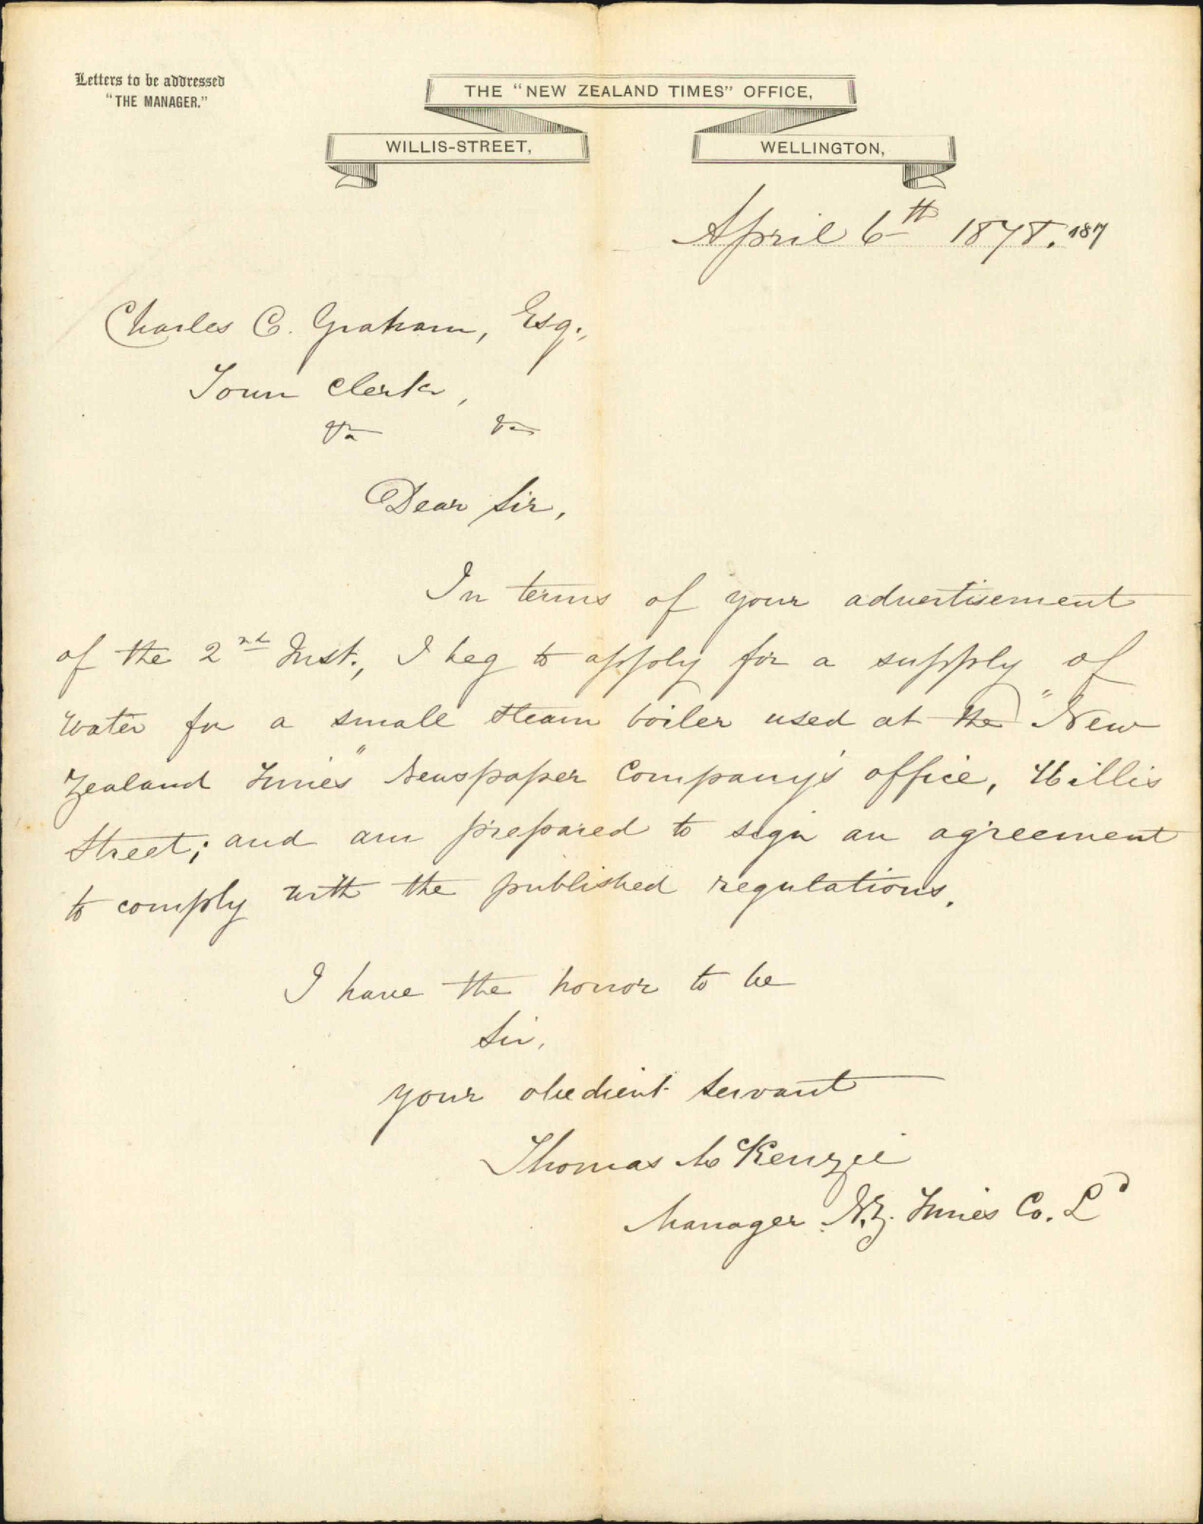 Letters to be addressed
"THE MANAGER."
THE "NEW ZEALAND TIMES" OFFICE,
WILLIS-STREET,
WELLINGTON,
April 6th 1878. 187
Charles C. Graham, Esq.,
Town Clerk,
&c &c
Dear Sir,
In terms of your advertisement
of the 2nd Inst., I beg to apply for a supply of
water for a small steam boiler used at the "New
Zealand Times" Newspaper Company's office, Willis
Street; and am prepared to sign an agreement
to comply with the published regulations.
I have the honor to be
Sir,
your obedient servant
Thomas McKenzie
Manager N.Z. Times Co. Ld